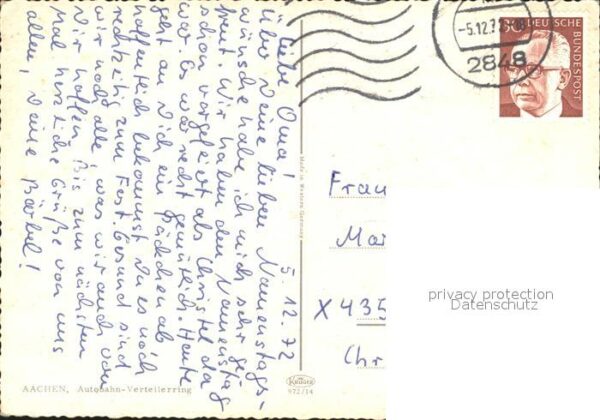 5.12.72
Liebe Oma!
über Deine lieben Namenstags-
wünsche habe ich mich sehr ge-
freut. Wir haben den Namenstag
schon vorgefeiert als Christel da
war. Es war recht gemütlich. Heute
geht an Dich ein Päckchen ab
hoffentlich bekommst Du es noch
rechtzeitig zum Fest. Gesund sind
wir noch alle, was wir auch von
Dir hoffen. Bis zum nächsten
Mal herzliche Grüße von uns
allen, Deine Bärbel!
-5.12.7
2848
30
DEUTSCHE
BUNDESPOST
Made in Western-Germany
Frau
Mar
X 435
Chr
privacy protection
Datenschutz
Krüger
972/14
AACHEN, Autobahn-Verteilerring